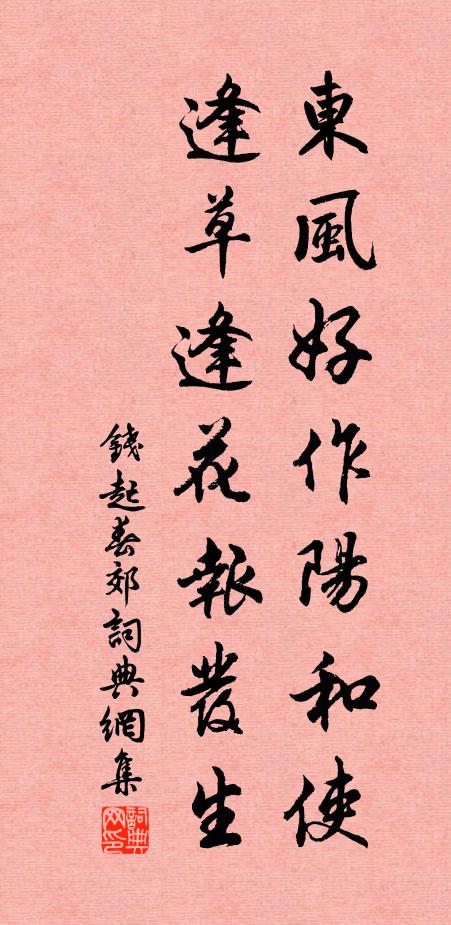 東風好作陽和使
逢草逢花報發生
錢起春郊詞典網集
詞典网印